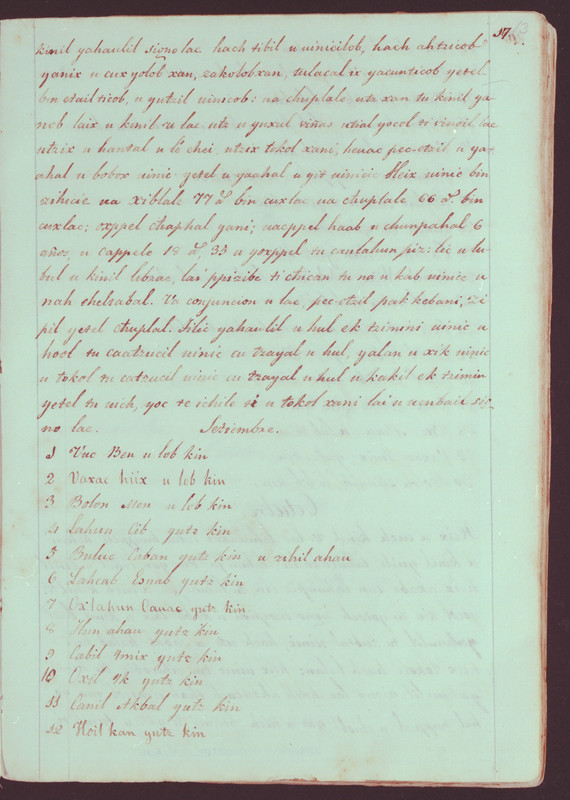 17.
kinil yahaulil signo lac hach tibil u uinicilob, hach ahtzicob
yanix u cuxyolob xan, zakolobxan, tulacal ix yacunticob yetel
bin etailticob, u yutzil uinicob: na chuplale utz xan tu kinil ya-
neb laix u kinil u lac utz u yuxul viñas utial yocol ti vinoil lae
utzix u hantal u le chei, utzix tokol xani, heuac pec-otzil u ya-
ahal u bobox uinic yetel u yaahal u yit uinicie Heix uinic bin
zihicie ua xiblale 77 a.ͦ bin cuxlac ua chuplale, 66 a.ͦ bin
cuxlac; oxppel chaphal yani; uacppel haab u chunpahal 6
años, u cappele 18 a.ͦ, 35 u yoxppel tu canlahun piz: lic u lu-
bul u kinil librae, lai ppizibe ti chican tu na u kab uinice u
nah chelzabal. Va conjuncion u lae, pec-otzil pak kebani, zi
pil yetel chuplal. Filic yahaulil u hul ek tzimini uinic u
hool tu caatzucil uinic cu tzayal u hul, yalan u xik uinic
u tokol tu catzucil uinic cu tzayal u hul u kakil ek tzimin
yetel tu uich, yoc te ichile ti u tokol xani lai u uenbail sig-
no lac. Setiembre.
1 Vuc Ben u lob kin
2 Vaxac hiix u lob kin
3 Bolon Men u lob kin
4 Lahun Cib yutz kin
5 Buluc Caban yutz kin u zihil ahau
6 Lahcab Eznab yutz kin
7 Oxlahun Cauac yutz kin
8 Hun ahau yutz kin
9 Cabil Ymix yutz kin
10 Oxil Yk yutz kin
11 Canil Akbal yutz kin
12 Hoil kan yutz kin